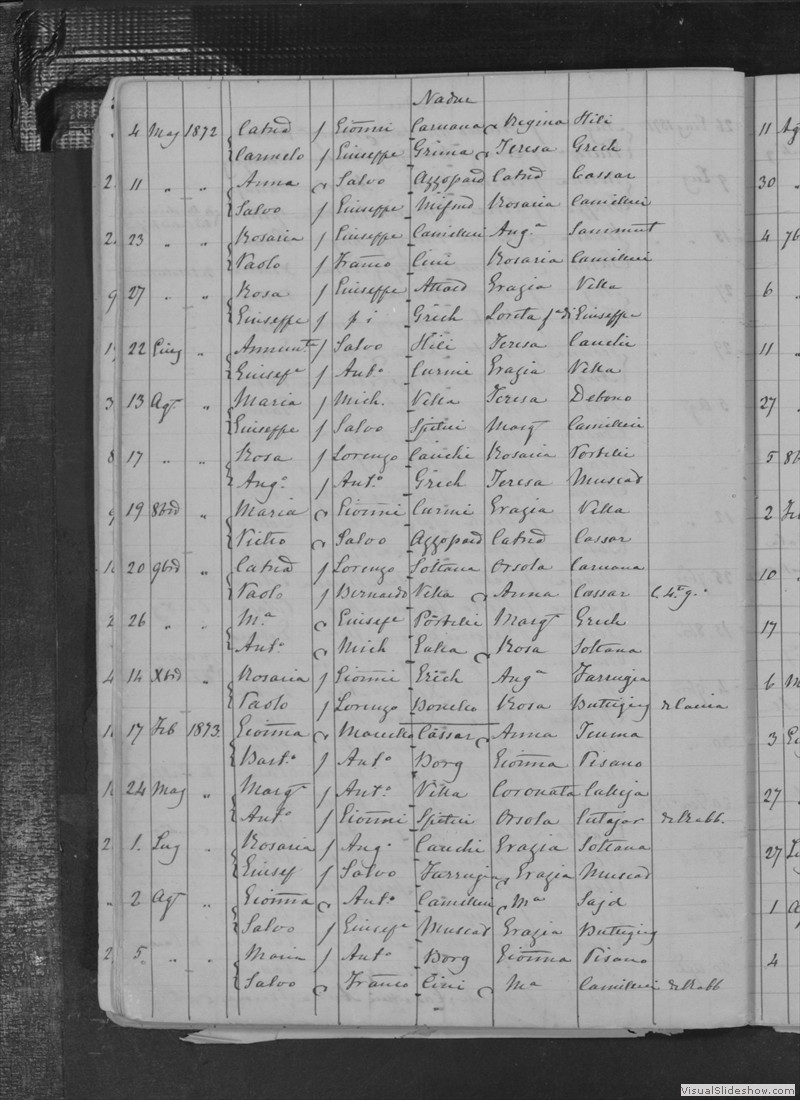 Nadur
4 Mag 1872 Catnd f Gionni Caruana Regina Hili
Carmelo f Giuseppe Grima Teresa Grech
2 11 " " Anna Salvo Azzopard Catnd Cassar
Salvo f Giuseppe Mifsud Rosaria Camilleri
2 23 " " Rosaria f Giuseppe Camilleri Ang.a Sammut
Paolo f Franco Cini Rosaria Camilleri
9 27 " " Rosa f Giuseppe Attard Grazia Vella
Giuseppe f p i Grech Loreta fa di Giuseppe
22 Giug " f Salvo Hili Teresa Cauchi
Giusefa f Anto Curmi Grazia Vella
3 13 Agt " Maria f Mich. Vella Teresa Debono
Giuseppe f Salvo Spiteri Margt Camilleri
8 17 " " Rosa f Lorenzo Cauchi Rosaria Portelli
Ango f Anto Grech Teresa Muscad
9 19 8brd " Maria Gionni Curmi Grazia Vella
Victro Salvo Azzopard Catnd Cassar
20 9brd " Catnd f Lorenzo Soltana Orsola Caruana
Paolo f Bernardo Vella Anna Cassar
2 26 " " Ma Giusepe Portelli Margt Grech
Anto Mich Rosa Soltana
4 14 Xbrd " Rosaria f Gionni Grech Anga Farrugia
Paolo f Lorenzo Bonello Rosa Buttigieg
17 Feb 1873 Gionna Cassar Anna
Barto f Anto Borg Gionna Pisano
24 Mag " Margt f Anto Vella Coronata Calleja
Anto f Gionni Spiteri Orsola Cutajar de Rabb.
2 1. Lug " Rosaria f Ang. Cauchi Grazia Soltana
Giusef f Salvo Farrugia Grazia Muscad
" 2 Agt " Gionna Anto Camilleri Ma Sajd
Salvo f Giusepe Muscat Grazia Buttigieg
2 5. " " Maria f Anto Borg Gionna Pisano
Salvo Franco Cini Ma Camilleri de Rabb
11 Ag
30 "
4 7b
6 "
11 "
27 "
5 8b
2
10 "
17
6 M
3
27 "
27
1 A
4
VisualSlideshow.com